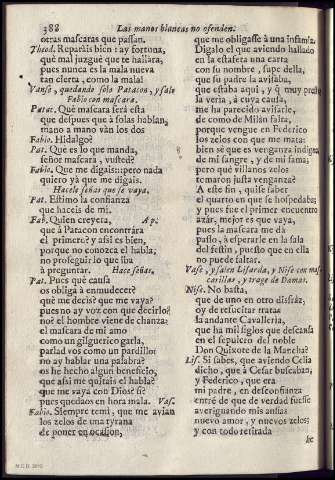 388
Las manos blancas no ofenden.
otras mascaras que passan.
Theod. Reparais bien: ay fortuna,
què mal juzguè que te hallara,
pues nunca es la mala nueva
tan cierta, como la mala!
Vanse, quedando solo Patacon, y sale
Fabio con mascara.
Patac. Què mascara serà esta
que despues que à solas hablan,
mano a mano vàn los dos
Fabio. Hidalgo?
Pat. Què es lo que manda,
señor mascara, vusted?
Fabio. Que me digais: pero nada
quiero yà que me digais.
Hacele señas que se vaya.
Pat. Estimo la confianza
que haceis de mi.
Fab. Quien creyera, Ap.
que à Patacon encontràra
el primero? y assi es bien,
porque no conozca el habla,
no proseguir lo que iba
à preguntar. Hace señas.
Pat. Pues què causa
os obliga à enmudecer?
què me decis? que me vaya?
pues no ay voz con que decirlo?
no? el hombre viene de chanza:
el mascara de mi amo
como un gilguerico garla,
parlad vos como un pardillo:
no ay hablar una palabra?
os he hecho algun beneficio,
que assi me quitais el habla?
que me vaya con Dios? si?
pues quedaos en hora mala. Vas.
Fabio. Siempre temi, que me avian
los zelos de una tyrana
de poner en ocasion,
que me obligasse à una infamia.
Digalo el que aviendo hallado
en la estafeta una carta
con su nombre, supe della,
que su padre la avisaba,
que estaba aqui, y q̃ muy presto
la veria, à cuya causa,
me ha parecido avisarle,
de como de Milàn falta,
porque vengue en Federico
los zelos con que me mata:
bien sè que es venganza indigna
de mi sangre, y de mi fama;
pero què villanos zelos
tomaron justa venganza?
A este fin, quise saber
el quarto en que se hospedaba;
y pues fue el primer encuentro
azàr, mejor es que vaya,
pues la mascara me dà
passo, à esperarle en la sala
del festin, puesto que en ella
no puede faltar.
Vase, y salen Lisarda, y Nise con mas-
carillas, y trage de Damas.
Nise. No basta,
que de uno en otro disfràz,
oy de resucitar tratas
la andante Cavalleria,
que ha mil siglos que descansa
en el sepulcro del noble
Don Quixote de la Mancha?
Lis. Si sabes, que aviendo Celia
dicho, que à Cesar buscaban,
y Federico, que era
mi padre, en desconfianza
entrè de que de verdad fuesse
averiguando mis ansias
nuevo amor, y nuevos zelos;
y con todo retirada